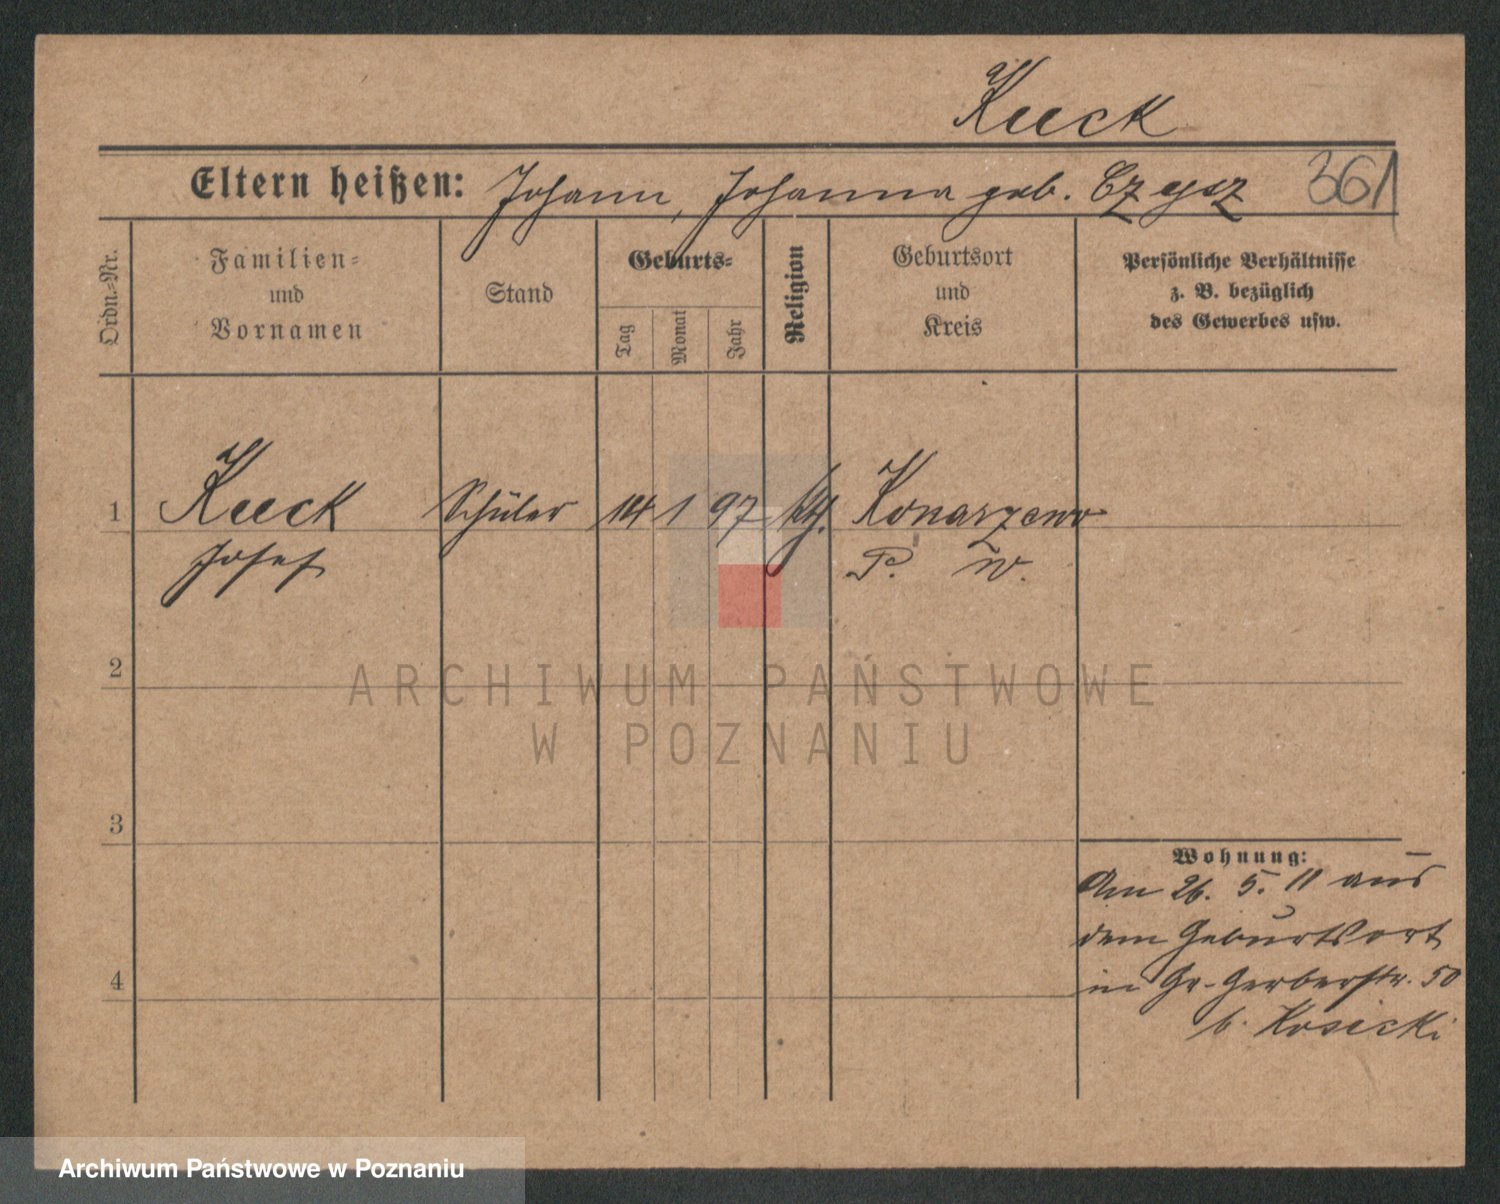 Kueck
Eltern heißen: Johann, Johanna geb. 361
Ordn.-Nr.
Familien-
und
Vornamen
Stand
Geburts-
Tag
Monat
Jahr
Religion
Geburtsort
und
Kreis
Persönliche Verhältnisse
z. B. bezüglich
des Gewerbes usw.
1 Kueck Schüler 14 1 97 kth. Konarzewo
Josef P. W.
2
3
4
Wohnung:
Am 26. 5. 11 aus
dem Geburtsort
in Gr. Gerberstr. 50
b. Kosicki
ARCHIWUM PAŃSTWOWE
W POZNANIU
Archiwum Państwowe w Poznaniu